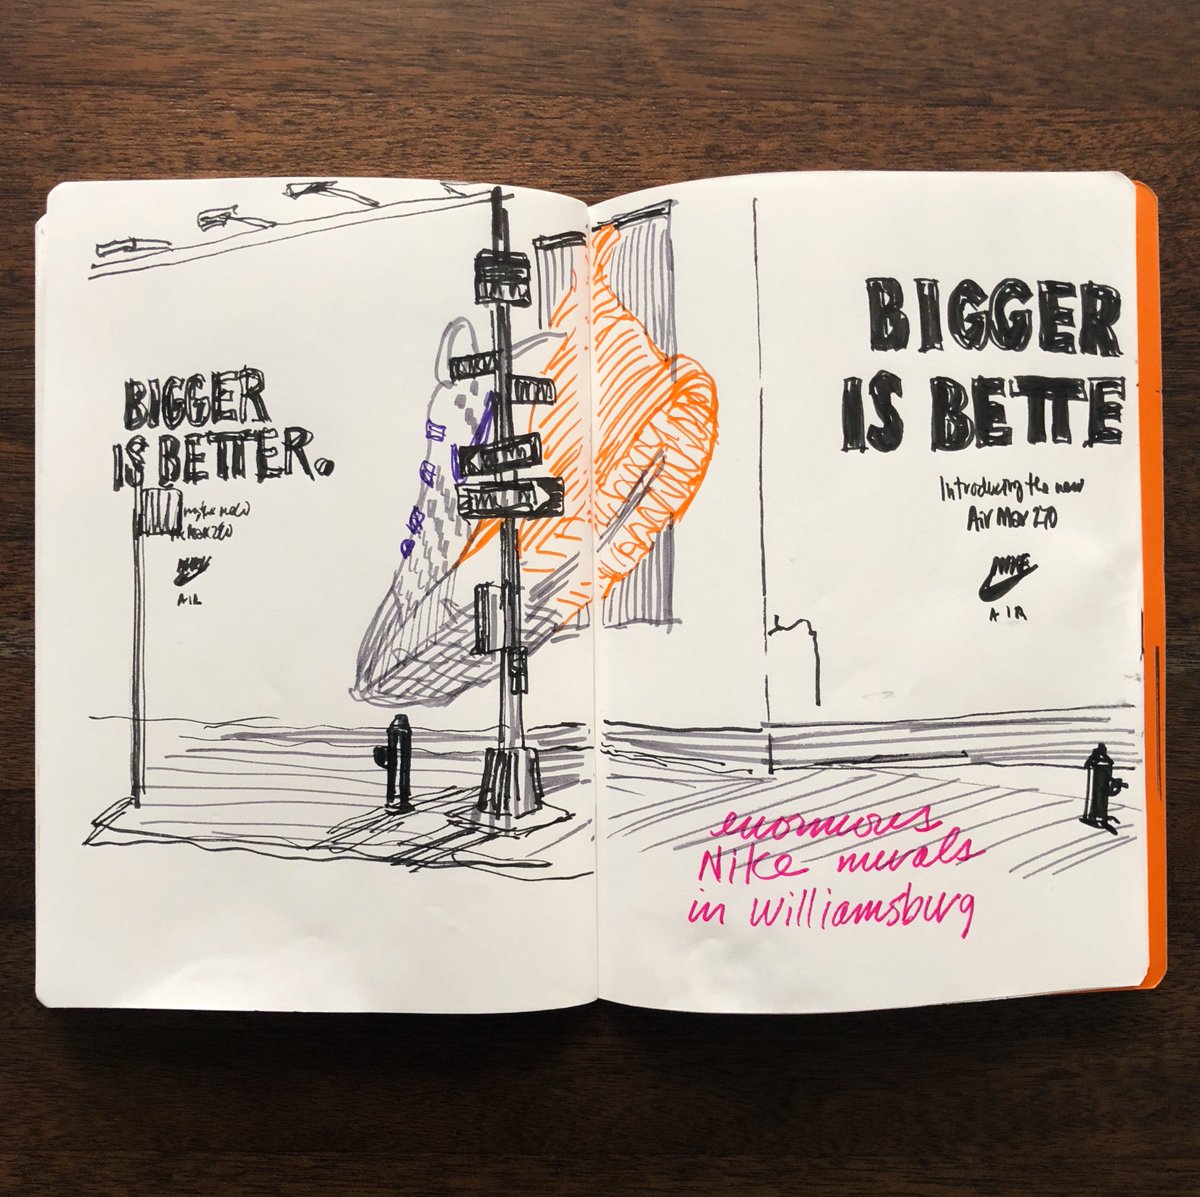 BIGGER
IS BETTER.
NIKE
AIR
BIGGER
IS BETTE
Introducing the new
Air Max 270
NIKE
AIR
enormous
Nike murals
in Williamsburg